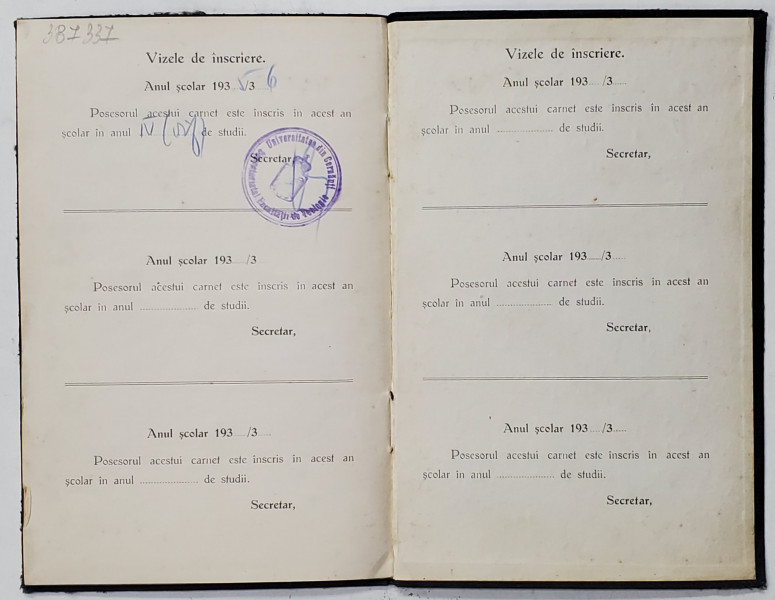 387337
Vizele de înscriere.
Anul școlar 1935/36
Posesorul acestui carnet este înscris în acest an
școlar în anul IV (IV) de studii.
Secretar,
Universitatea din Cernăuți
Facultății de Teologie
Anul școlar 193...../3
Posesorul acestui carnet este înscris în acest an
școlar în anul .................... de studii.
Secretar,
Anul școlar 193...../3.....
Posesorul acestui carnet este înscris în acest an
școlar în anul .................... de studii.
Secretar,
Vizele de înscriere.
Anul școlar 193...../3.....
Posesorul acestui carnet este înscris în acest an
școlar în anul .................... de studii.
Secretar,
Anul școlar 193...../3.....
Posesorul acestui carnet este înscris în acest an
școlar în anul .................... de studii.
Secretar,
Anul școlar 193...../3.....
Posesorul acestui carnet este înscris în acest an
școlar în anul .................... de studii.
Secretar,